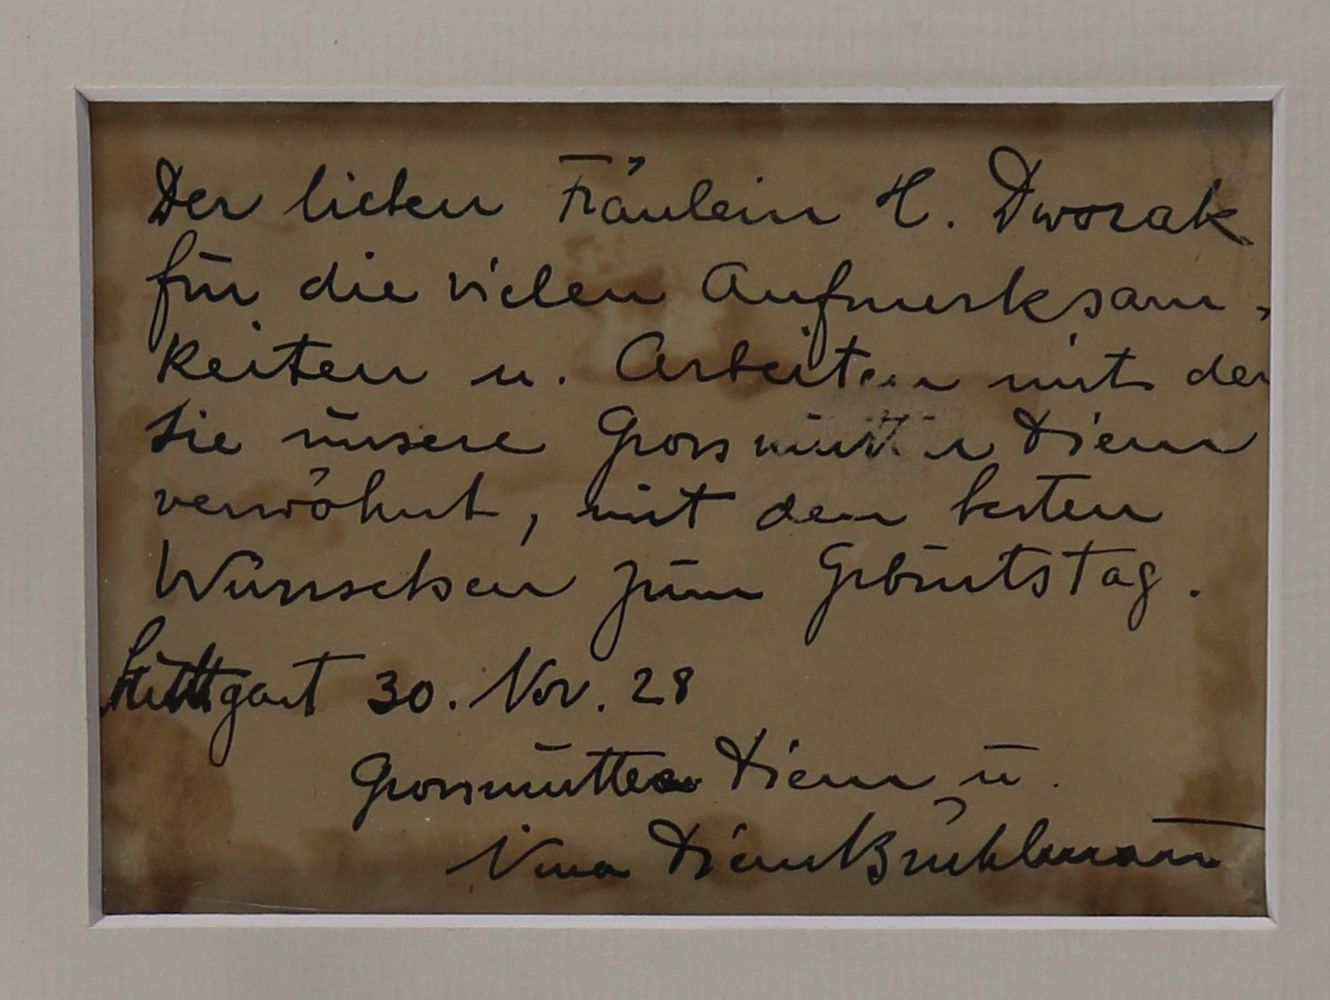 Der lieben Fräulein H. Dworak
für die vielen Aufmerksam-
keiten u. Arbeiten mit der
sie unsere Grossmutter Diem
verwöhnt, mit den besten
Wünschen zum Geburtstag.
Stuttgart 30. Nov. 28
Grossmutter Diem u.
Nina Diem Brühlmann